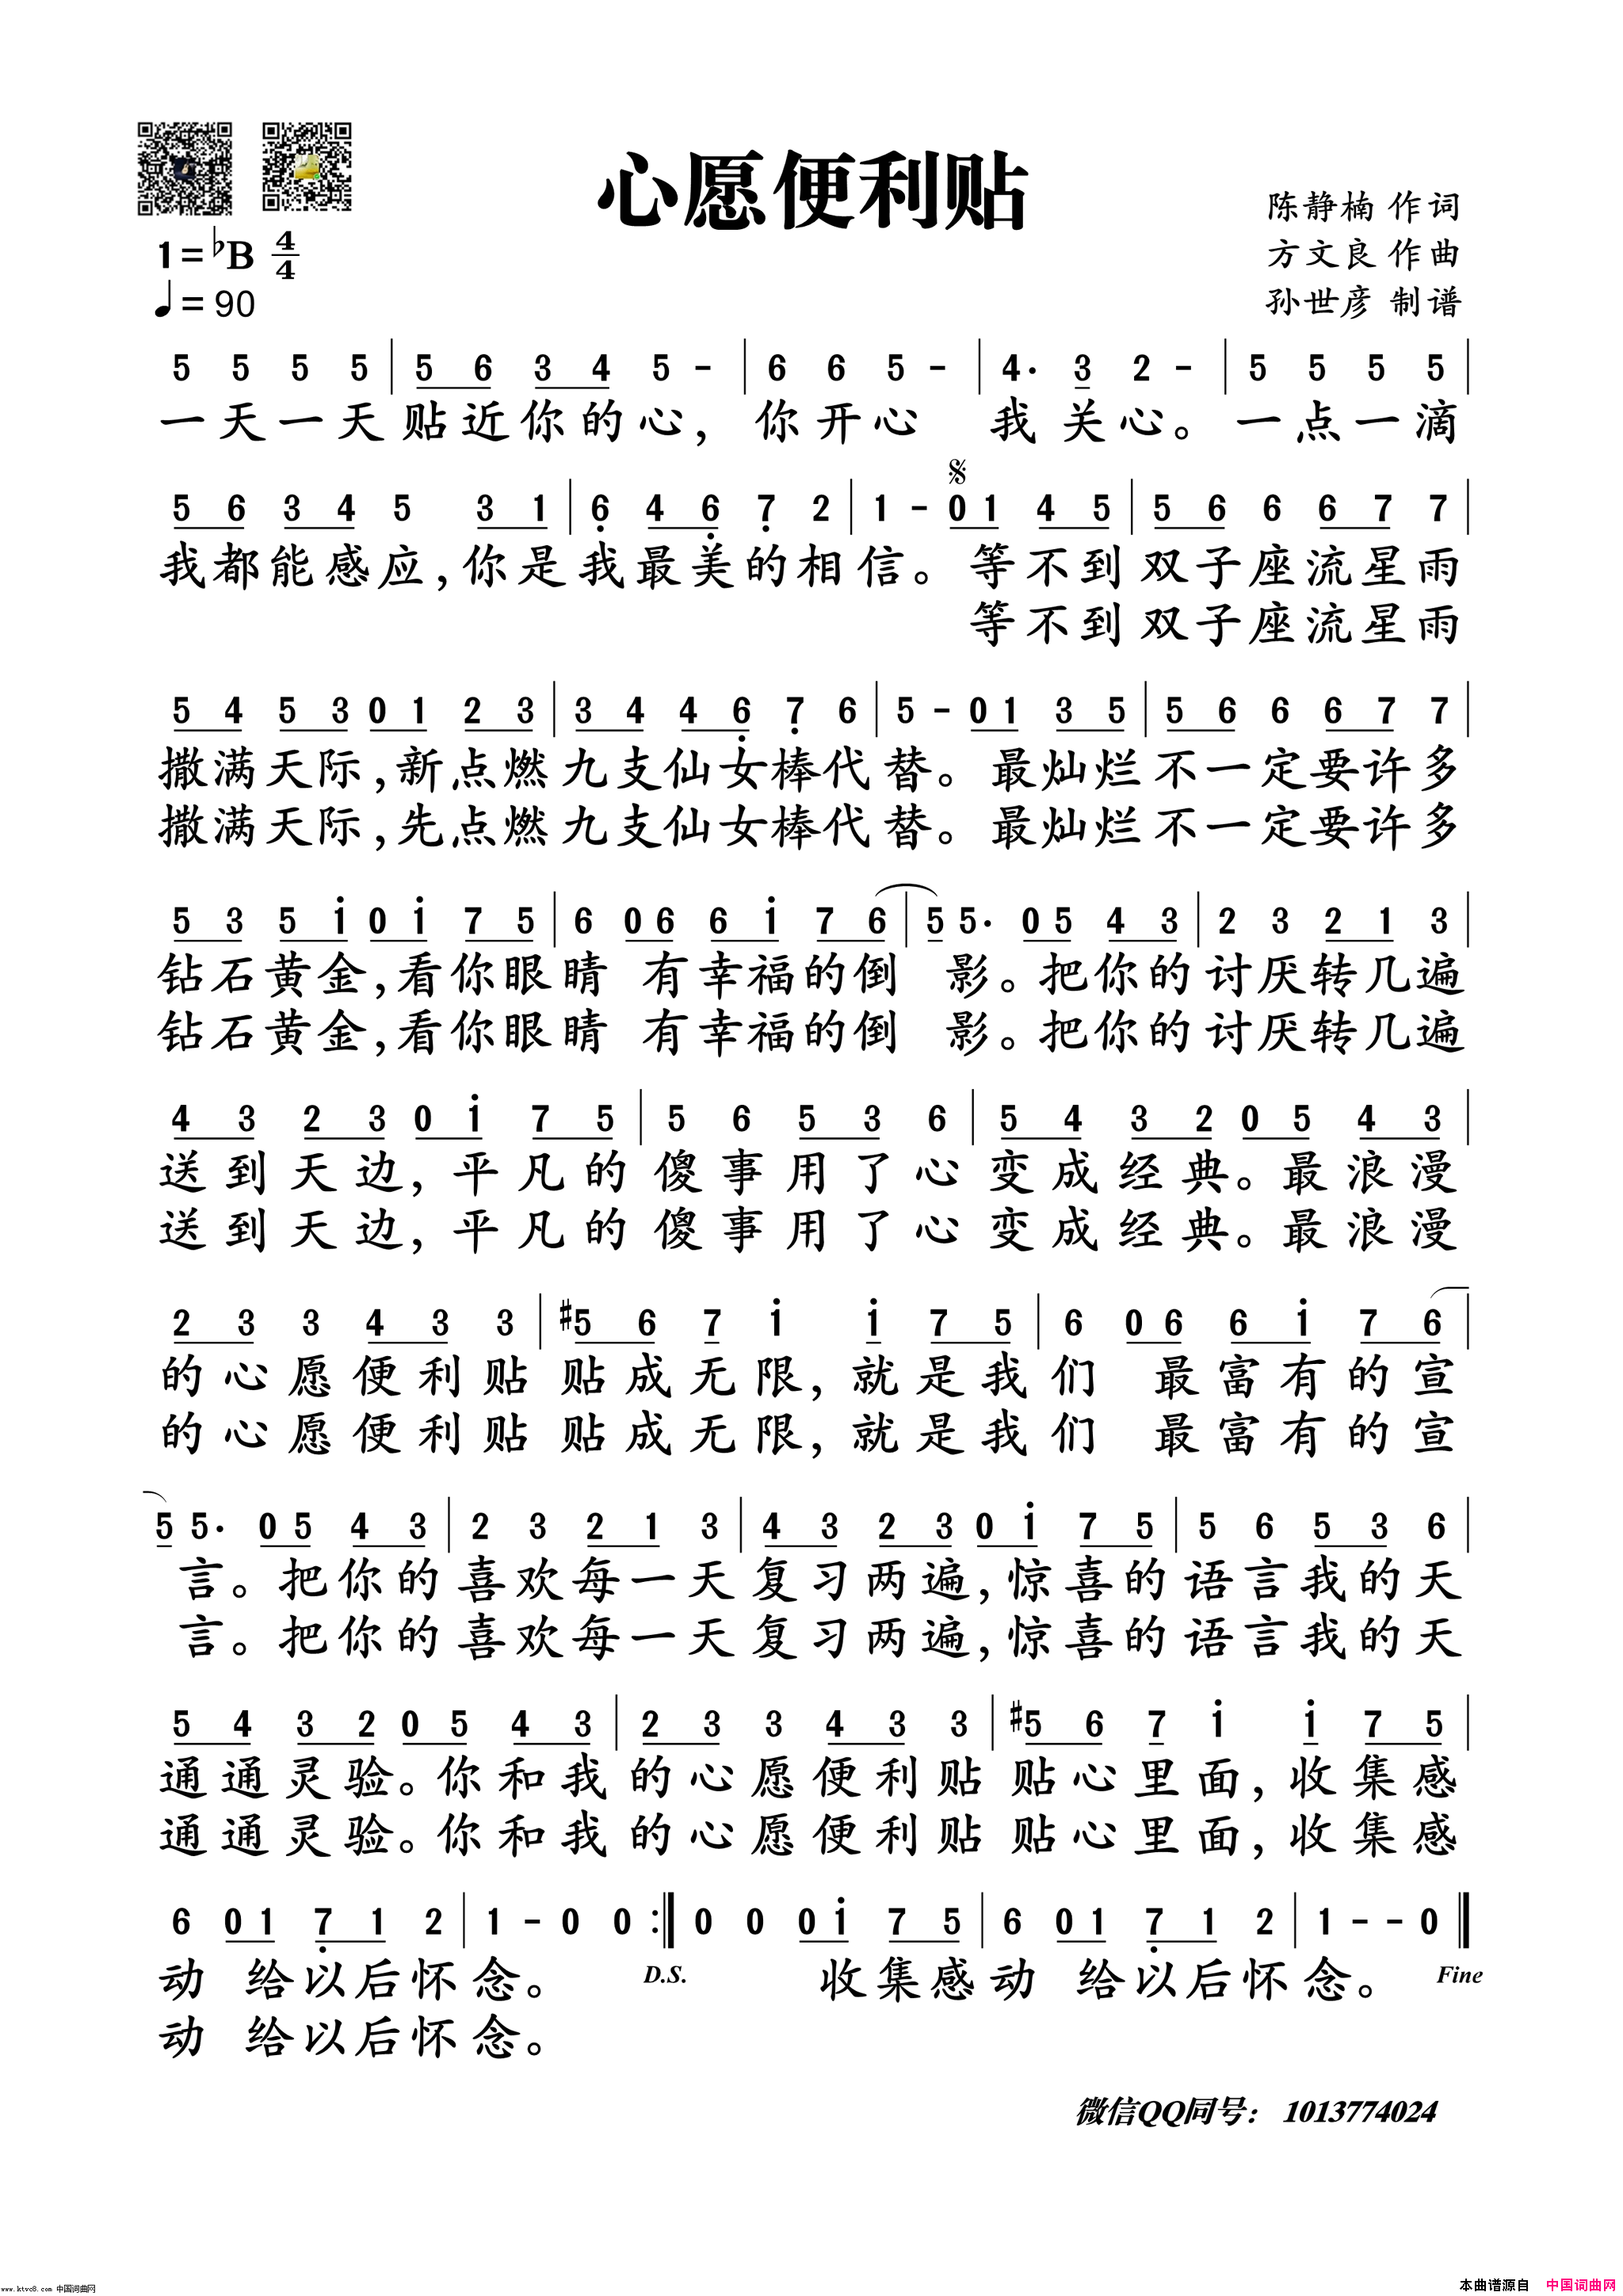 心愿便利贴
陈静楠 作词
方文良 作曲
孙世彦 制谱
1=♭B 4/4
♩=90
5 5 5 5 | 5 6 3 4 5 - | 6 6 5 - | 4· 3 2 - | 5 5 5 5 |
一天一天贴近你的心，你开心 我关心。一点一滴
5 6 3 4 5 3 1 | 6̣ 4 6̣ 7̣ 2 | 1 - 𝄋 0 1 4 5 | 5 6 6 6 7 7 |
我都能感应，你是我最美的相信。等不到双子座流星雨
等不到双子座流星雨
5 4 5 3 0 1 2 3 | 3 4 4 6̣ 7̣ 6 | 5 - 0 1 3 5 | 5 6 6 6 7 7 |
撒满天际，新点燃九支仙女棒代替。最灿烂不一定要许多
撒满天际，先点燃九支仙女棒代替。最灿烂不一定要许多
5 3 5 1̇ 0 1̇ 7 5 | 6 0 6 6 1̇ 7 6 | 5 5· 0 5 4 3 | 2 3 2 1 3 |
钻石黄金，看你眼睛 有幸福的倒 影。把你的讨厌转几遍
钻石黄金，看你眼睛 有幸福的倒 影。把你的讨厌转几遍
4 3 2 3 0 1̇ 7 5 | 5 6 5 3 6 | 5 4 3 2 0 5 4 3 |
送到天边，平凡的傻事用了心变成经典。最浪漫
送到天边，平凡的傻事用了心变成经典。最浪漫
2 3 3 4 3 3 | #5 6 7 1̇ 1̇ 7 5 | 6 0 6 6 1̇ 7 6 |
的心愿便利贴贴成无限，就是我们 最富有的宣
的心愿便利贴贴成无限，就是我们 最富有的宣
5 5· 0 5 4 3 | 2 3 2 1 3 | 4 3 2 3 0 1̇ 7 5 | 5 6 5 3 6 |
言。把你的喜欢每一天复习两遍，惊喜的语言我的天
言。把你的喜欢每一天复习两遍，惊喜的语言我的天
5 4 3 2 0 5 4 3 | 2 3 3 4 3 3 | #5 6 7 1̇ 1̇ 7 5 |
通通灵验。你和我的心愿便利贴贴心里面，收集感
通通灵验。你和我的心愿便利贴贴心里面，收集感
6 0 1 7̣ 1 2 | 1 - 0 0 :‖ 0 0 0 1̇ 7 5 | 6 0 1 7̣ 1 2 | 1 - - 0 ‖
动 给以后怀念。 D.S. 收集感动 给以后怀念。 Fine
动 给以后怀念。
微信QQ同号： 1013774024
www.ktvc8.com 中国词曲网
本曲谱源自 中国词曲网